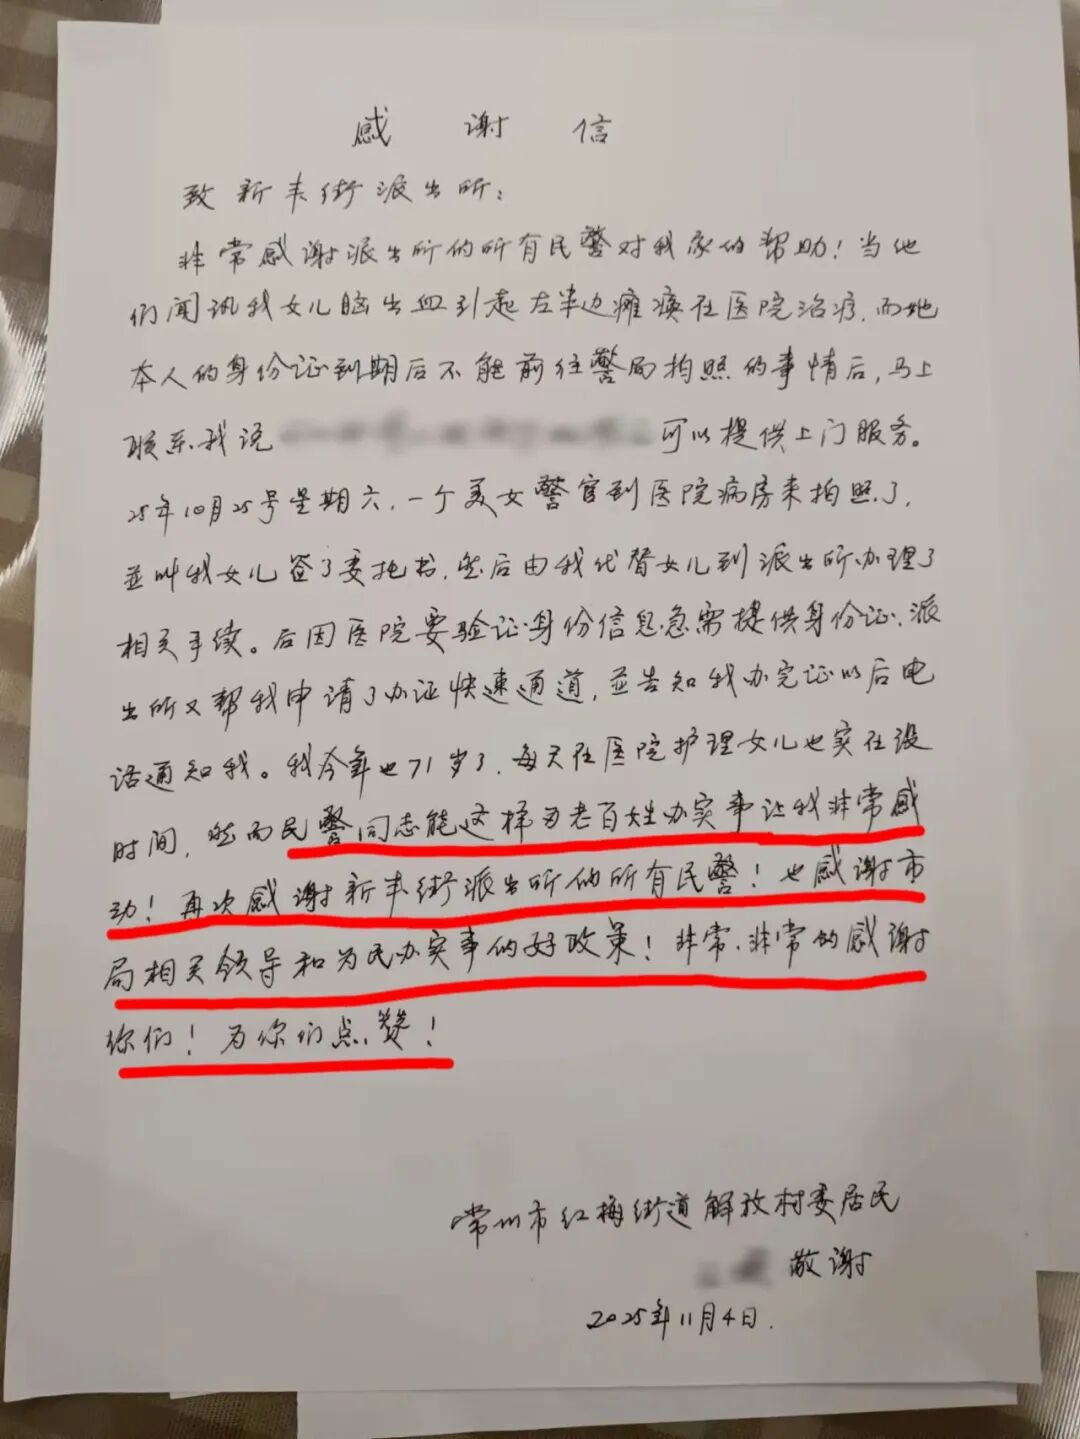 感谢信
致新丰街派出所:
非常感谢派出所的所有民警对我家的帮助!当他
们闻讯我女儿脑出血引起左半边瘫痪在医院治疗,而她
本人的身份证到期后不能前往警局拍照的事情后,马上
联系我说 可以提供上门服务。
25年10月25号星期六,一个美女警官到医院病房来拍照了,
並叫我女儿签了委托书,然后由我代替女儿到派出所办理了
相关手续。后因医院要验证身份信息急需提供身份证,派
出所又帮我申请了办证快速通道,並告知我办完证以后电
话通知我。我今年也71岁了,每天在医院护理女儿也实在没
时间,然而民警同志能这样为老百姓办实事让我非常感
动!再次感谢新丰街派出所的所有民警!也感谢市
局相关领导和为民办实事的好政策!非常、非常的感谢
你们!为你们点赞!
常州市红梅街道解放村委居民
敬谢
2025年11月4日.